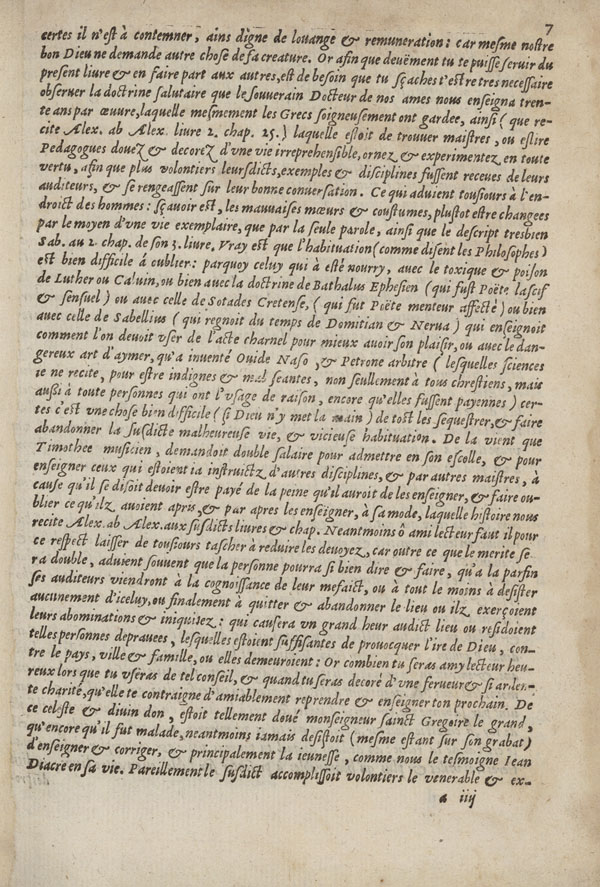 7
certes il n'est à contemner, ains digne de louange & remuneration: car mesme nostre
bon Dieu ne demande autre chose de sa creature. Or afin que deuëment tu te puisse seruir du
present liure & en faire part aux autres, est de besoin que tu sçaches t'estre tres necessaire
obseruer la doctrine salutaire que le souuerain Docteur de nos ames nous enseigna tren-
te ans par œuure, laquelle mesmement les Grecs soigneusement ont gardee, ainsi ( que re-
cite Alex. ab Alex. liure 2. chap. 25. ) laquelle estoit de trouuer maistres, ou eslire
Pedagogues douez & decorez d'vne vie irreprehensible, ornez & experimentez en toute
vertu, afin que plus volontiers leursdicts, exemples & disciplines fussent receues de leurs
auditeurs, & se rengeassent sur leur bonne conuersation. Ce qui aduient tousiours à l'en-
droict des hommes: sçauoir est, les mauuaises mœurs & coustumes, plustot estre changees
par le moyen d'vne vie exemplaire, que par la seule parole, ainsi que le descript tresbien
Sab. au 2. chap. de son 3. liure, Vray est que l'habituation (comme disent les Philosophes)
est bien difficile à oublier: parquoy celuy qui à esté nourry, auec le toxique & poison
de Luther ou Caluin, ou bien auec la doctrine de Bathalus Ephesien (qui fust Poëte lascif
& sensuel) ou auec celle de Sotades Cretense, ( qui fut Poëte menteur affecté) ou bien
auec celle de Sabellius ( qui regnoit du temps de Domitian & Nerua) qui enseignoit
comment l'on deuoit vser de l'acte charnel pour mieux auoir son plaisir, ou auec le dan-
gereux art d'aymer, qu'a inuenté Ouide Naso, & Petrone arbitre ( lesquelles sciences
ie ne recite, pour estre indignes & mal seantes, non seullement à tous chrestiens, mais
aussi à toute personnes qui ont l'vsage de raison, encore qu'elles fussent payennes ) cer-
tes c'est vne chose bien difficile ( si Dieu n'y met la main ) de tost les sequestrer, & faire
abandonner la susdicte malheureuse vie, & vicieuse habituation. De la vient que
Timothee musicien, demandoit double salaire pour admettre en son escolle, & pour
enseigner ceux qui estoient ia instruictz d'autres disciplines, & par autres maistres, à
cause qu'il se disoit deuoir estre payé de la peine qu'il auroit de les enseigner, & faire ou-
blier ce qu'ilz auoient apris, & par apres les enseigner, à sa mode, laquelle histoire nous
recite Alex. ab Alex. aux susdicts liures & chap. Neantmoins ô ami lecteur faut il pour
ce respect laisser de tousiours tascher à reduire les deuoyez, car outre ce que le merite se
ra double, aduient souuent que la personne pourra si bien dire & faire, qu'a la parfin
ses auditeurs viendront à la cognoissance de leur mefaict, ou à tout le moins à desister
aucunement d'iceluy, ou finalement à quitter & abandonner le lieu ou ilz exerçoient
leurs abominations & iniquitez: qui causera vn grand heur audict lieu ou residoient
telles personnes deprauees, lesquelles estoient suffisantes de prouocquer l'ire de Dieu, con-
tre le pays, ville & famille, ou elles demeuroient: Or combien tu seras amy lecteur heu-
reux lors que tu vseras de tel conseil, & quand tu seras decoré d'vne ferueur & si arden-
te charité, qu'elle te contraigne d'amiablement reprendre & enseigner ton prochain. De
ce celeste & diuin don, estoit tellement doué monseigneur sainct Gregoire le grand,
qu'encore qu'il fut malade, neantmoins iamais desistoit (mesme estant sur son grabat)
d'enseigner & corriger, & principalement la ieunesse, comme nous le tesmoigne Iean
Diacre en sa vie. Pareillement le susdict accomplissoit volontiers le venerable & ex-
a iiij